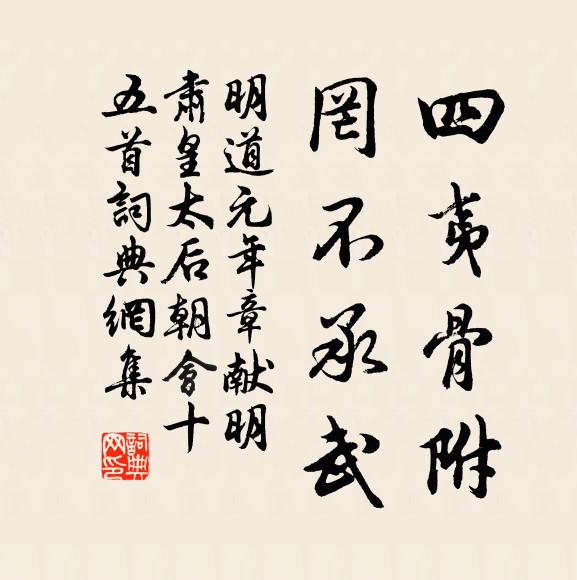 四夷骨附
罔不承武
明道元年章献明
肃皇太后朝會十
五首詞典網集
詞典
网印